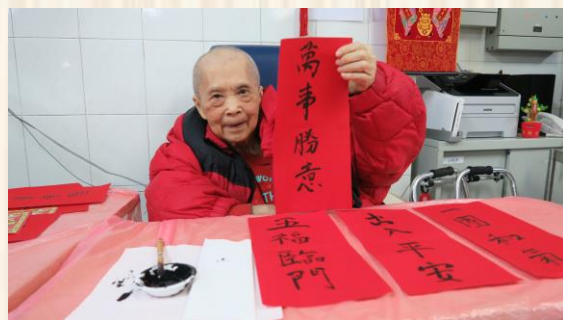 萬事勝意
五福臨門
出入平安
一團和氣